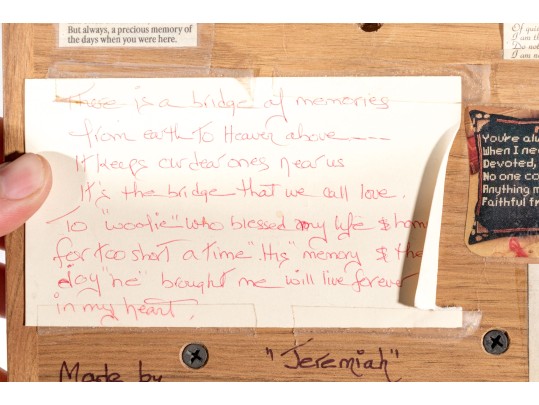 But always, a precious memory of
the days when you were here.
Of qui
I am th
Do not
I am n
There is a bridge of memories
from earth To Heaven above----
It keeps our dear ones near us
It's the bridge that we call love.
To "woofie" who blessed my life & hom
for too short a time". "His" memory & the
joy "he" brought me will live forever
in my heart.
You're alw
When I nee
Devoted,
No one co
Anything m
Faithful fr
Made by
"Jeremiah"